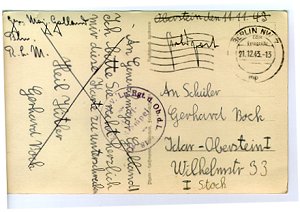 Oberstein den 11.11.43
Feldpost
BERLIN NW 7
21.12.43.-13
mp
An Generalmajor Galland!
Ich bitte Sie recht herzlich
mir diese Karte zu unterschreiben
Heil Hitler
Gerhard Bock
Gen. Maj. Galland
Bln.
R.L.M.
An Schüler
Gerhard Bock
Idar-Oberstein I
Wilhelmstr 33
I Stock